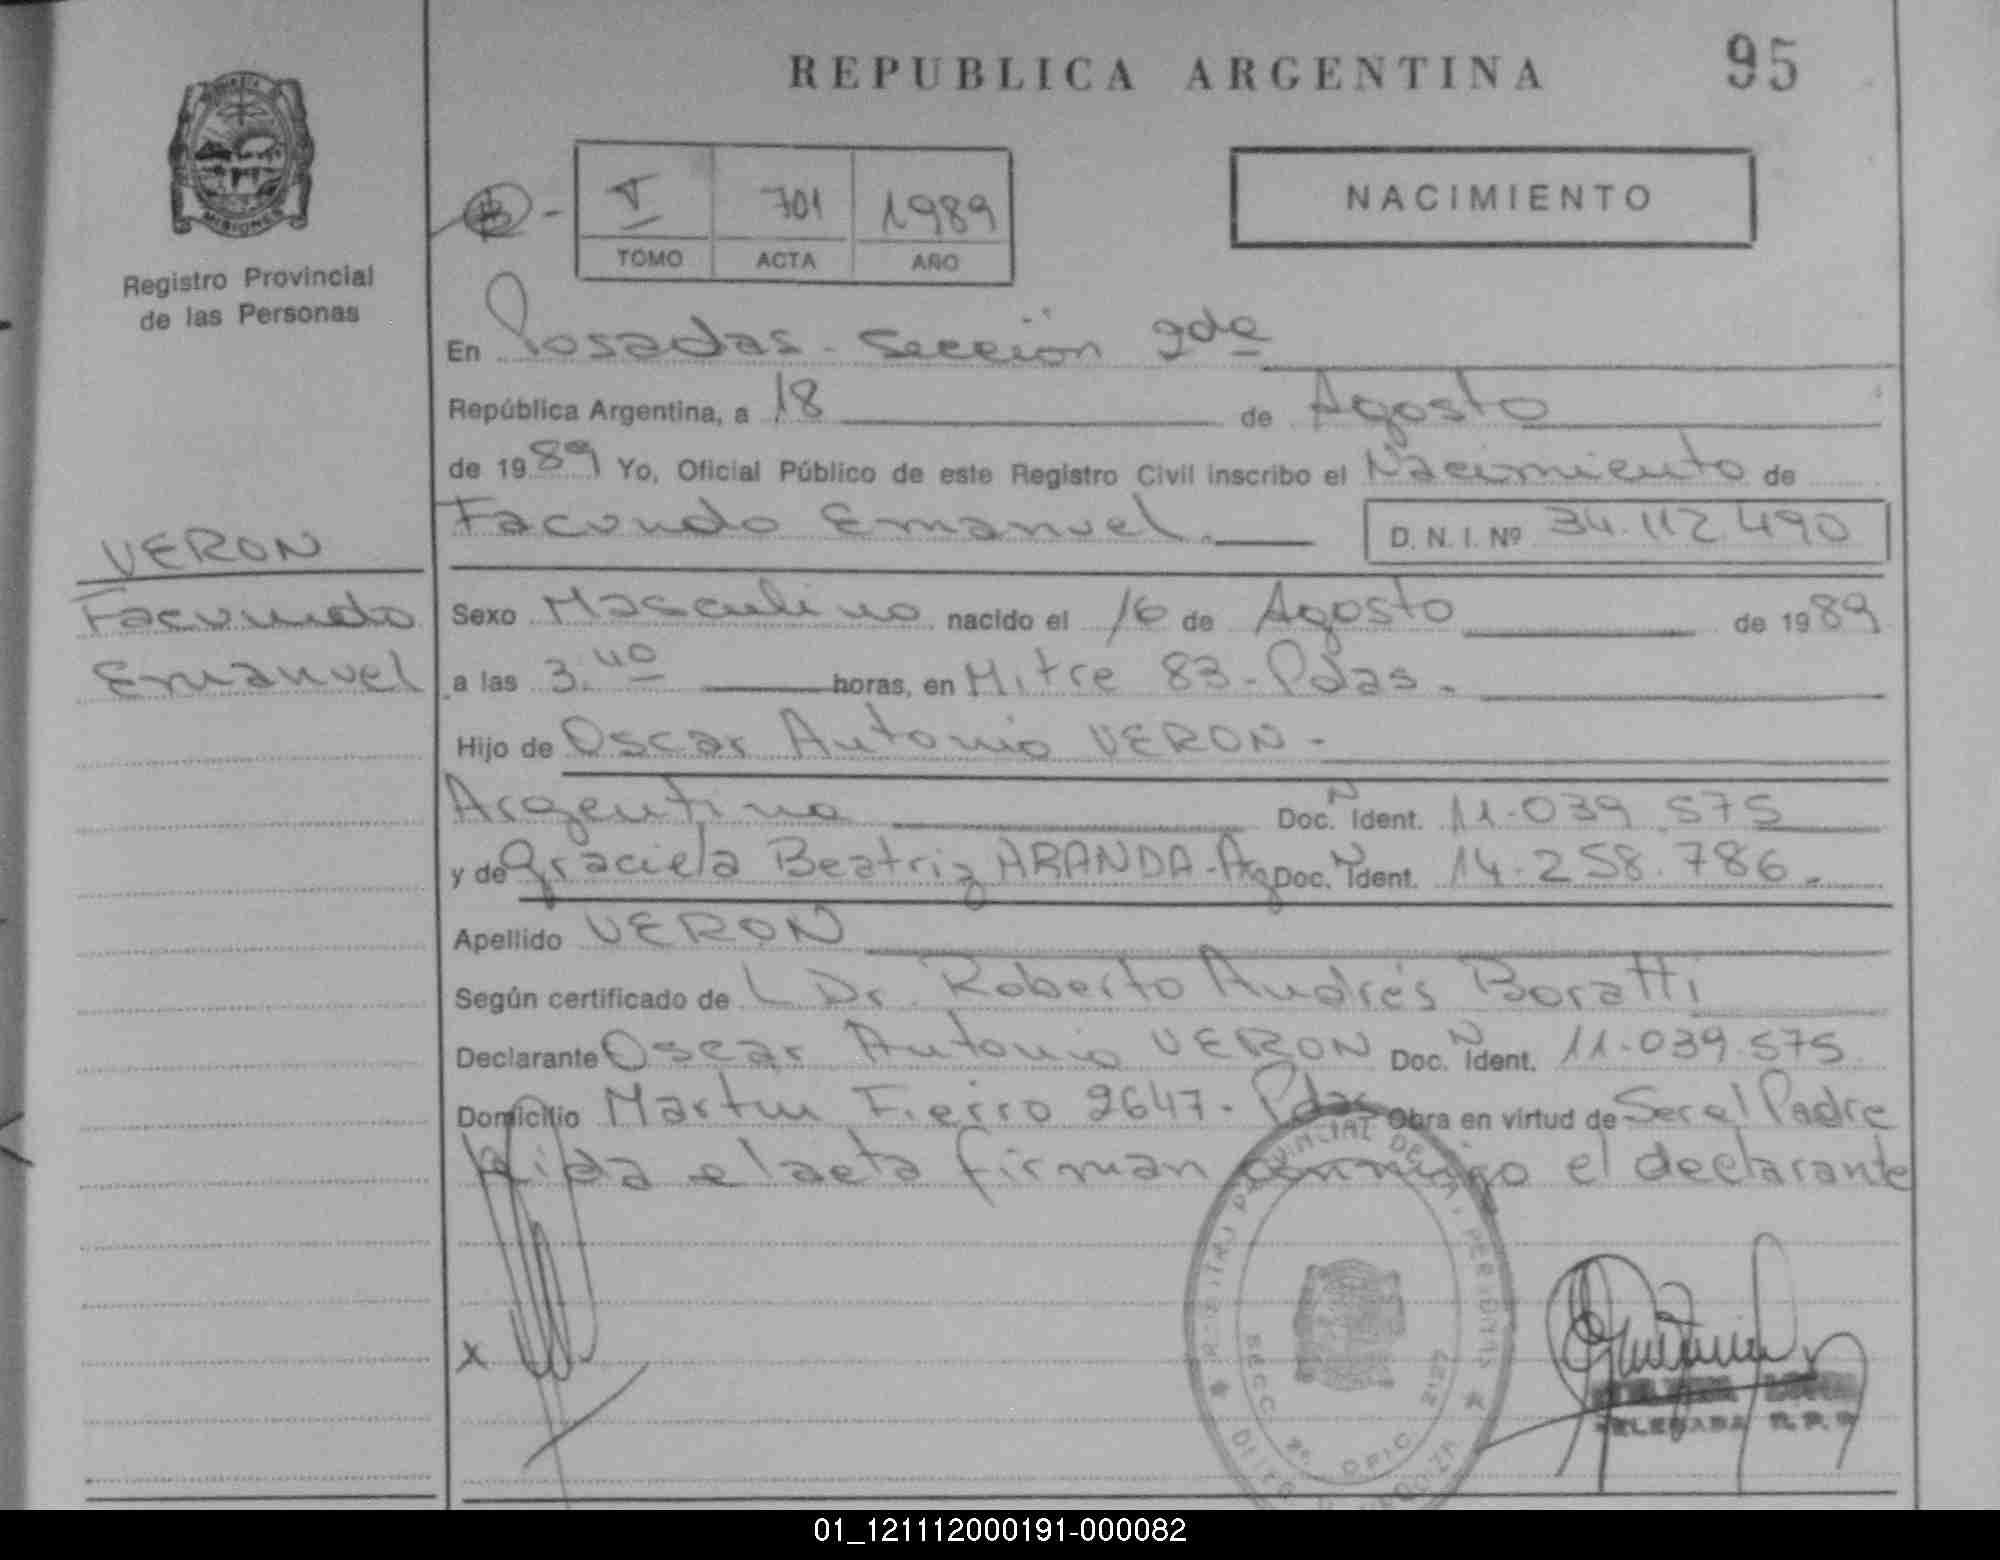 REPUBLICA ARGENTINA
95
MISIONES
Registro Provincial
de las Personas
I 701 1989
TOMO ACTA AÑO
NACIMIENTO
En Posadas - Sección 2da
República Argentina, a 18 de Agosto
de 1989 Yo, Oficial Público de este Registro Civil inscribo el Nacimiento de
Facundo Emanuel. D. N. I. Nº 34.112.490
VERON
Facundo
Emanuel
Sexo Masculino nacido el 16 de Agosto de 1989
a las 3.40 horas, en Mitre 83 - Pdas.
Hijo de Oscar Antonio VERON -
Argentino Doc. N Ident. 11.039.575
y de Graciela Beatriz ARANDA - Arg Doc. N Ident. 14.258.786.
Apellido VERON
Según certificado de L Dr. Roberto Andrés Boratti
Declarante Oscar Antonio VERON Doc. N Ident. 11.039.575
Domicilio Martin Fierro 2647 - Pdas Obra en virtud de Ser el Padre
leida el acta firman conmigo el declarante
x
SECC. 2a. DPIC. 2127
DELEGADA R. P. P.
01_121112000191-000082